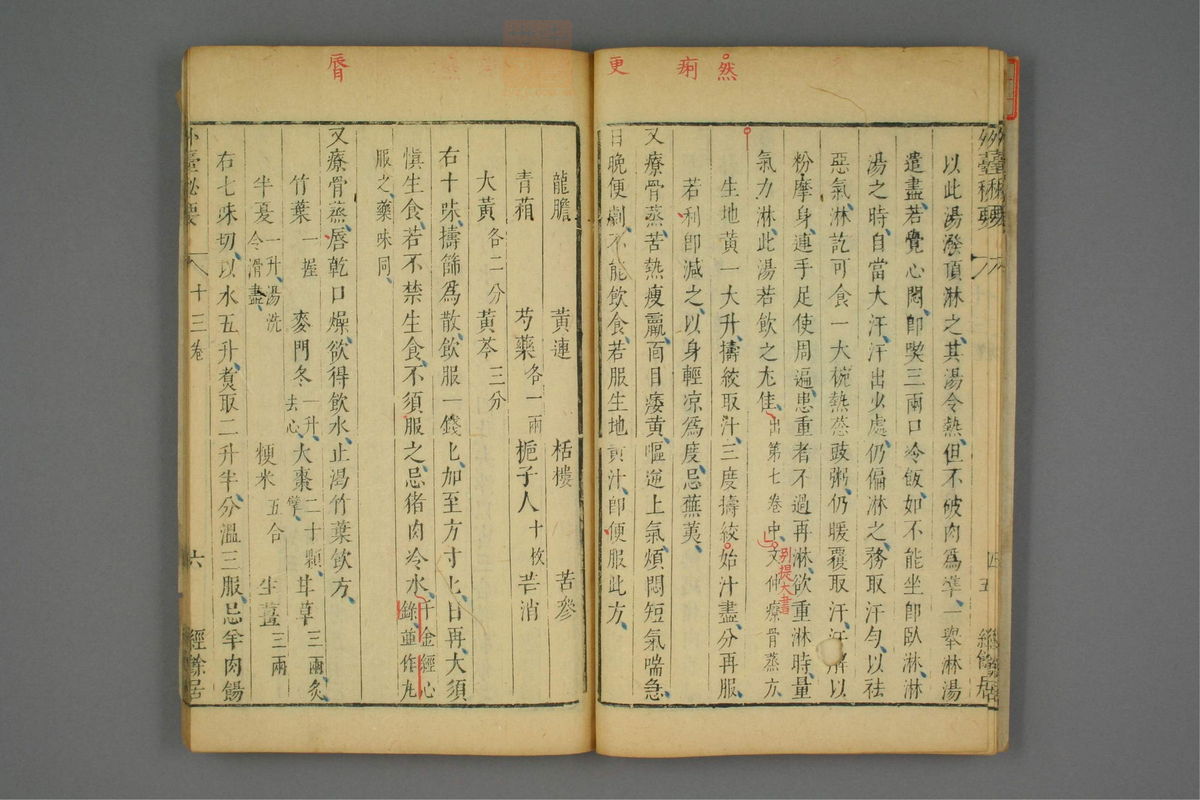 然
痢
更
外臺秘要
以此湯潑頂淋之其湯令熱但不破肉為準一舉淋湯
遣盡若覺心悶即喫三兩口冷飯如不能坐即臥淋淋
湯之時自當大汗汗出少處仍偏淋之務取汗勻以祛
惡氣淋訖可食一大椀熱葱豉粥仍暖覆取汗汗解以
粉摩身連手足使周遍患重者不過再淋欲重淋時量
氣力淋此湯若飲之尤佳出第七卷中文仲療骨蒸方
別提大書
生地黃一大升擣絞取汁三度擣絞始汁盡分再服
若利即減之以身輕凉為度忌蕪荑
又療骨蒸苦熱瘦羸面目痿黃嘔逆上氣煩悶短氣喘急
日晚便劇不能飲食若服生地黃汁即便服此方
脣
龍膽 黃連 栝樓 苦參
青葙 芍藥各一兩 梔子人十枚 芒消
大黃各二分 黃芩三分
右十味擣篩為散飲服一錢匕加至方寸匕日再大須
慎生食若不禁生食不須服之忌猪肉冷水千金經心
錄並作丸
服之藥味同
又療骨蒸唇乾口燥欲得飲水止渴竹葉飲方
竹葉一握 麥門冬一升去心 大棗二十顆擘 甘草三兩炙
半夏一升湯洗令滑盡 粳米五合 生薑三兩
右七味切以水五升煑取二升半分溫三服忌羊肉餳
外臺秘要
十三卷
六
經餘居